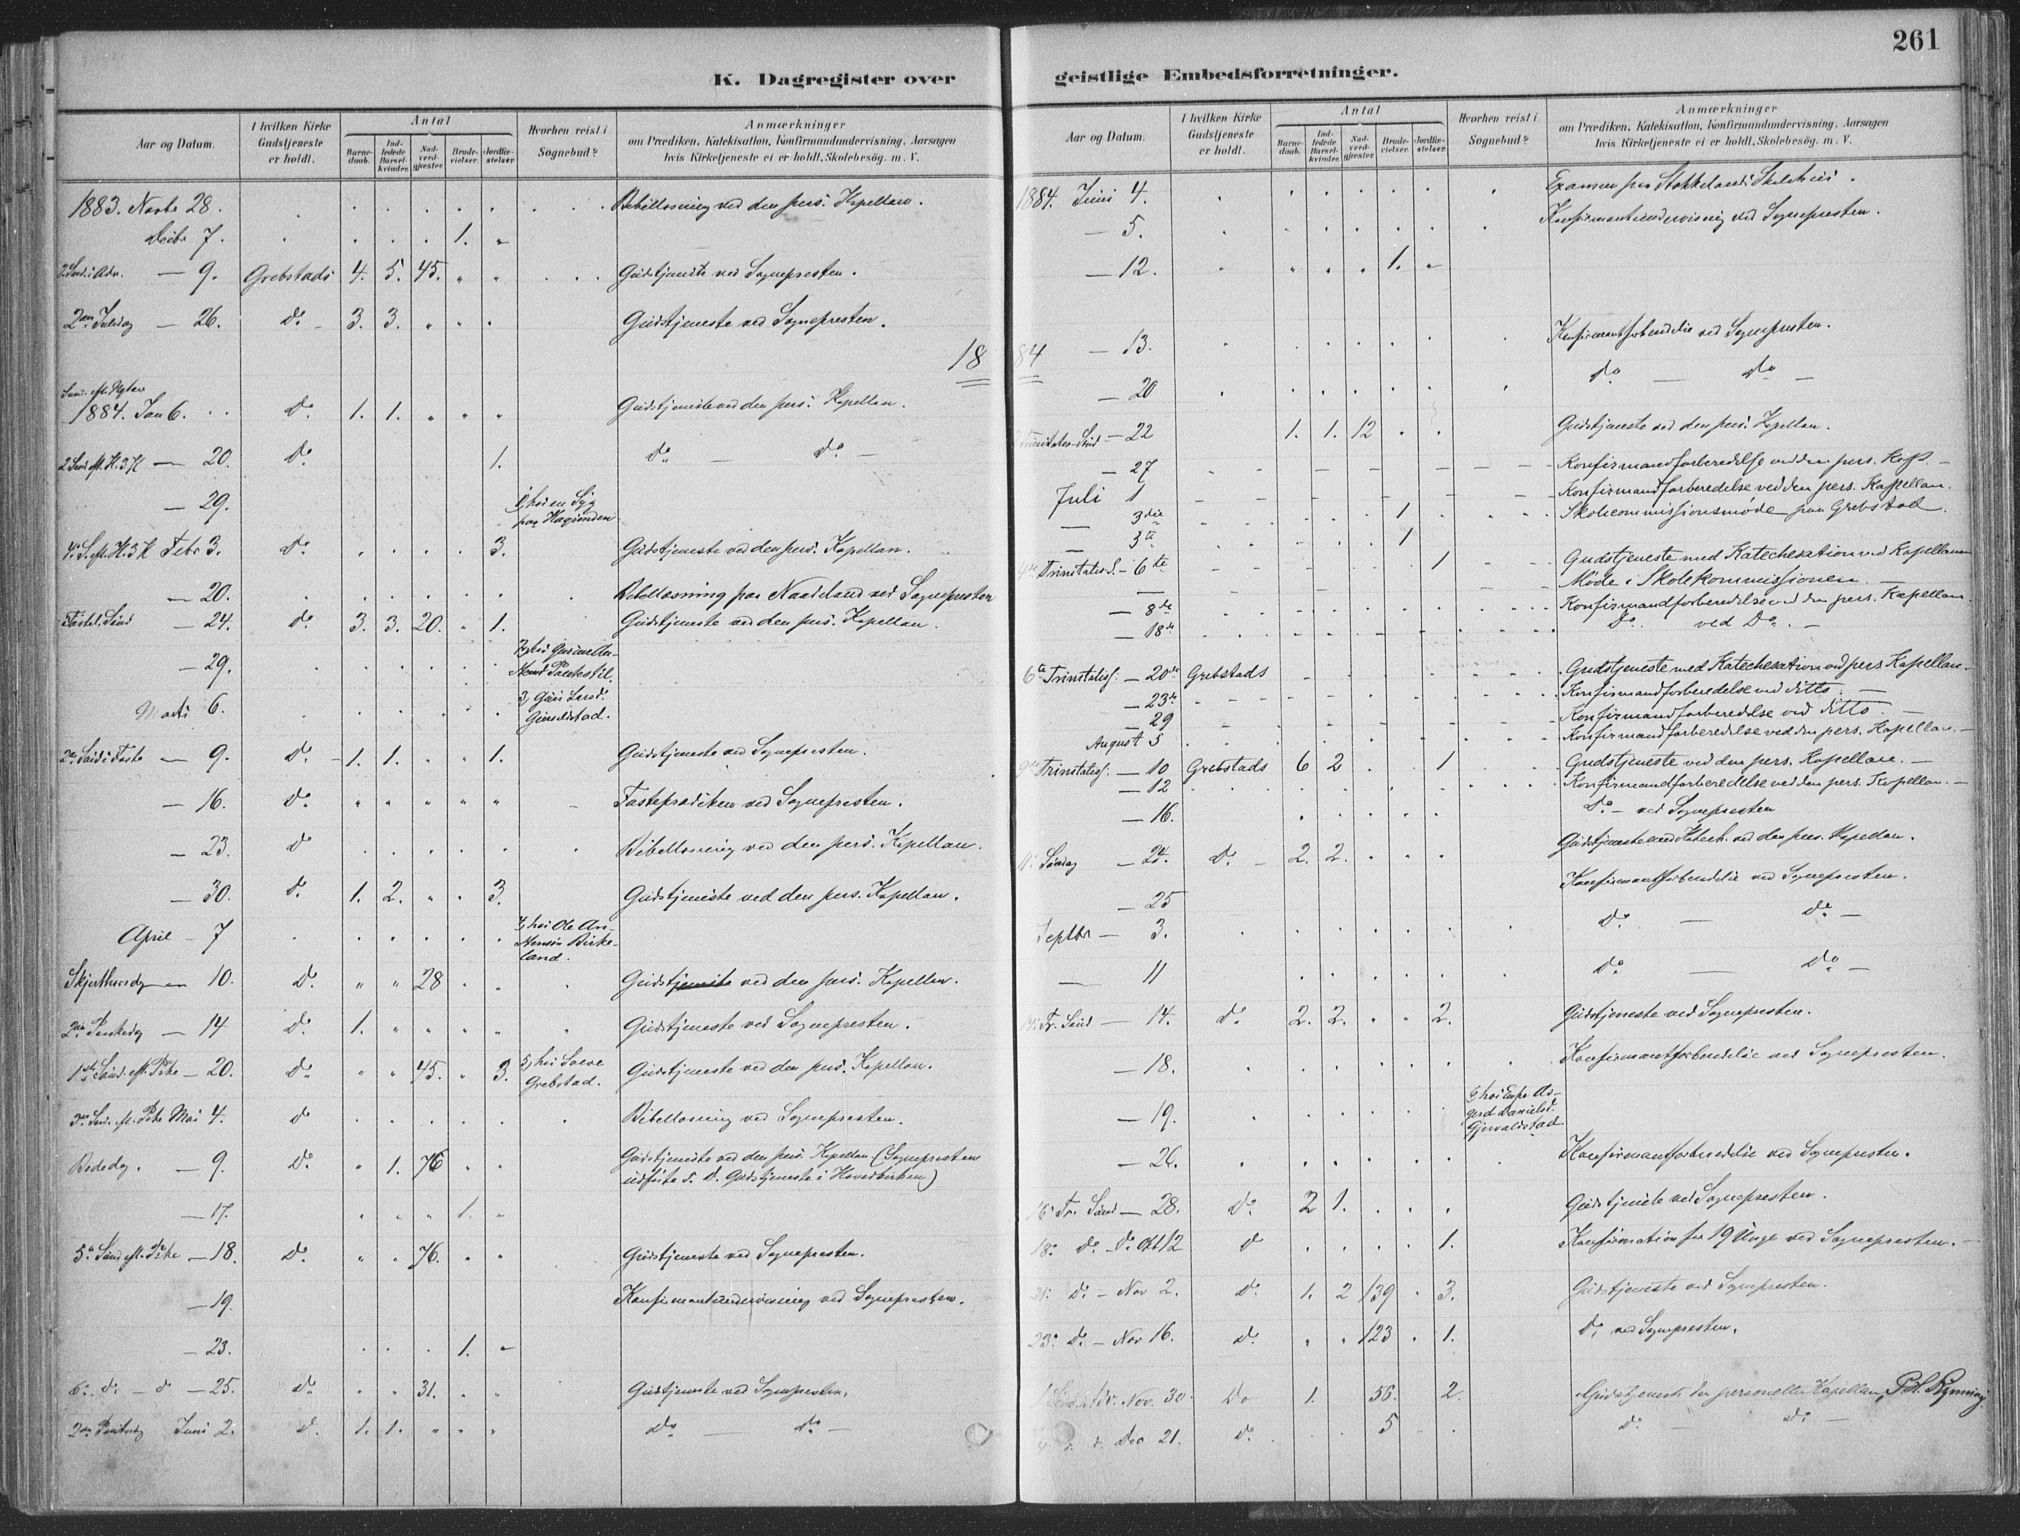 261
K. Dagregister over geistlige Embedsforretninger.
Aar og Datum. | I hvilken Kirke Gudstjeneste er holdt. | Antal | Barnedaab. | Indledede Barselkvinder. | Nadverdgjester. | Brudevielser. | Jordfæstelser. | Hvorhen reist i Sognebud? | Anmærkninger om Prædiken, Katekisation, Konfirmandundervisning, Aarsagen hvis Kirketjeneste ei er holdt, Skolebesög. m. V.
1883. Novbr 28. Bibellæsning ved den pers. Kapellan.
Decbr 7. 1.
2 Sønd. i Adv. — 9. Grebstads 4. 5. 45. Gudstjeneste ved Sognepresten.
2den Juledag — 26. do 3. 3. Gudstjeneste ved Sognepresten.
1884
1884. Jan 6. do 1. 1. Gudstjeneste ved den pers. Kapellan.
2 Sønd. eft. H. 3 K — 20. do 1. do — do —
— 29. hos en Syg paa
4. S. eft. H. 3 K Febr 3. do 3. Gudstjeneste ved den pers. Kapellan.
— 20. Bibellæsning paa ved Sognepresten
Fastel. Sønd — 24. do 3. 3. 20. 1. Gudstjeneste ved den pers. Kapellan.
— 29.
Marts 6.
2den Sønd. i Faste — 9. do 1. 1. 1. Gudstjeneste ved Sognepresten.
— 16. do Fasteprædiken ved Sognepresten.
— 23. do Bibellæsning ved den pers. Kapellan.
— 30. do 1. 2. 3. Gudstjeneste ved den pers. Kapellan.
April — 7 hos Ole Andersen Birkeland.
Skjærthorsdag — 10. do 28 Gudstjeneste ved den pers. Kapellan.
2den Paaskedag — 14 do 1. Gudstjeneste ved Sognepresten.
1ste Sønd. eft. Paaske — 20. do 45. 3. Grebstad. Gudstjeneste ved den pers. Kapellan.
3. Sønd. eft. Paaske Mai 4. do Bibellæsning ved Sognepresten.
Bededag. — 9. do 1. 76 Gudstjeneste ved den pers. Kapellan (Sognepresten
udførte s. D. Gudstjeneste i Hovedkirken)
— 17. 1.
5. Sønd. eft. Paaske — 18. do 76. Gudstjeneste ved Sognepresten.
— 19. Konfirmantundervisning ved Sognepresten.
— 23. 1.
6. do — do — 25. do 31. Gudstjeneste ved Sognepresten.
2den Juni 2. do 1. 1. do — do —
Aar og Datum. | I hvilken Kirke Gudstjeneste er holdt. | Antal | Barnedaab. | Indledede Barselkvinder. | Nadverdgjester. | Brudevielser. | Jordfæstelser. | Hvorhen reist i Sognebud? | Anmærkninger om Prædiken, Katekisation, Konfirmandundervisning, Aarsagen hvis Kirketjeneste ei er holdt, Skolebesög. m. V.
1884. Juni 4. Examen paa
— 5. Konfirmantundervisning ved Sognepresten.
— 12. 1.
— 13. Konfirmantforberedelse ved Sognepresten.
— 20 do — do —
— 22 1. 1. 12 Gudstjeneste ved den pers. Kapellan.
— 27 Konfirmandforberedelse ved den pers. Kap. —
Juli 1 Konfirmandforberedelse ved den pers. Kapellan.
— 3die 1 Skolecommissionsmøde paa Grebstad.
— 1
Trinitatis S. — 6te 1 Gudstjeneste med Katechesation ved Kapellanen
— Møde i Skolekommissionen. —
— 8de Konfirmandforberedelse ved den pers. Kapellan.
— 18de Do. ved Do. —
6te Trinitatis S. — 20de Grebstads Gudstjeneste med Katechesation ved pers. Kapellan. —
— 23de Konfirmandforberedelse ved ditto. —
— 29 Konfirmandforberedelse ved ditto. —
August 5 Konfirmandforberedelse ved den pers. Kapellan. —
9de Trinitatis S. — 10 Grebstads 6 2 1 Gudstjeneste ved den pers. Kapellan. —
— 12 Konfirmandforberedelse ved den pers. Kapellan. —
— 16. Do — ved Sognepresten
11. Søndag — 24. Do — 2. 2. Gudstjeneste med Katech. ved den pers. Kapellan.
— 25 Konfirmantforberedelse ved Sognepresten.
Septbr — 3. do — do —
— 11 do — do —
14. Tr. Sønd — 14. do 2. 2. 2. Gudstjeneste ved Sognepresten.
— 18. Konfirmantforberedelse ved Sognepresten.
— 19. Danielsd. Gjervaldstad
— 26. Konfirmantforberedelse ved Sognepresten.
16. Tr. Sønd — 28. do 2 1. Gudstjeneste ved Sognepresten.
18. do — do Okt 12 do 1. Konfirmation for 19 Unge ved Sognepresten. —
21. do — Nov 2. do 1. 2 139 3. Gudstjeneste ved Sognepresten.
23. do — Nov 16. do 123 1. do ved Sognepresten.
Nov. 30. Do 1. 56. 2. Gudstjeneste den personelle Kapellan,
Dec 21. do 5 do do —